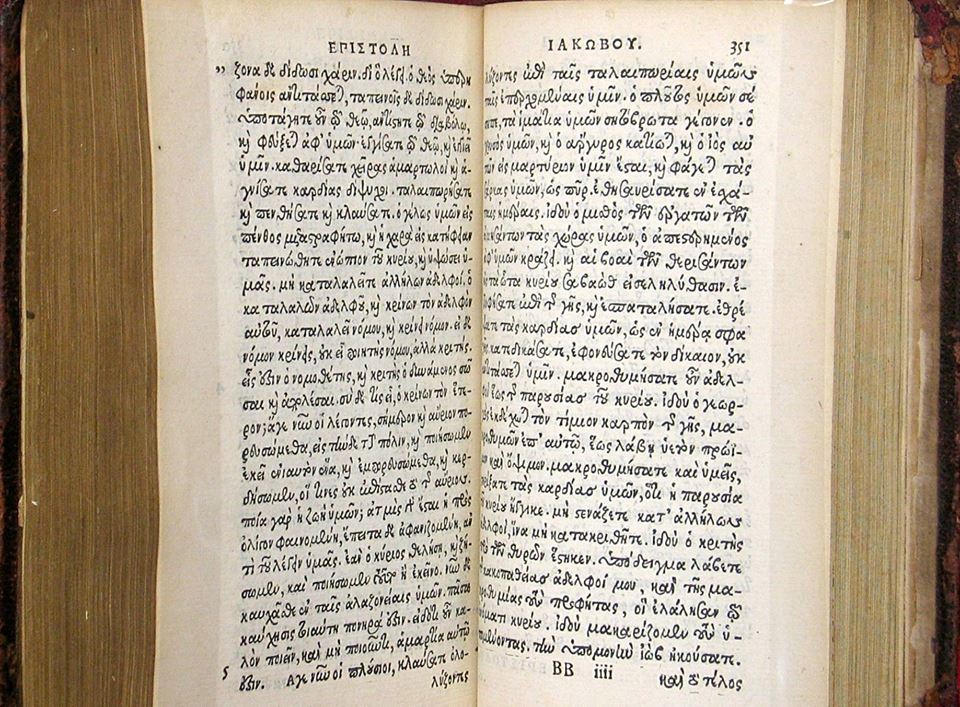 ΕΠΙΣΤΟΛΗ
„ ζονα δὲ δίδωσι χάριν. διὸ λέγει. ὁ θεὸς ὑπερη
φάνοις ἀντιτάσσεται, ταπεινοῖς δὲ δίδωσι χάριν.
ὑποτάγητε οὖν τῷ θεῷ, ἀντίστητε τῷ διαβόλῳ,
καὶ φεύξεται ἀφ' ὑμῶν· ἐγγίσατε τῷ θεῷ, καὶ ἐγγιεῖ
ὑμῖν. καθαρίσατε χεῖρας ἁμαρτωλοὶ καὶ ἁ-
γνίσατε καρδίας δίψυχοι. ταλαιπωρήσατε
καὶ πενθήσατε καὶ κλαύσατε. ὁ γέλως ὑμῶν εἰς
πένθος μεταστραφήτω, καὶ ἡ χαρὰ εἰς κατήφειαν
ταπεινώθητε ἐνώπιον τοῦ κυρίου, καὶ ὑψώσει ὑ-
μᾶς. μὴ καταλαλεῖτε ἀλλήλων ἀδελφοί. ὁ
καταλαλῶν ἀδελφοῦ, καὶ κρίνων τὸν ἀδελφὸν
αὐτοῦ, καταλαλεῖ νόμου, καὶ κρίνει νόμον. εἰ δὲ
νόμον κρίνεις, οὐκ εἶ ποιητὴς νόμου, ἀλλὰ κριτής.
εἷς ἐστιν ὁ νομοθέτης, καὶ κριτὴς ὁ δυνάμενος σῶ
σαι καὶ ἀπολέσαι. σὺ δὲ τίς εἶ, ὁ κρίνων τὸν ἕτε-
ρον; ἄγε νῦν οἱ λέγοντες, σήμερον καὶ αὔριον πο-
ρευσώμεθα, εἰς τήνδε τὴν πόλιν, καὶ ποιήσωμεν
ἐκεῖ ἐνιαυτὸν ἕνα, καὶ ἐμπορευσώμεθα, καὶ κερ-
δήσωμεν, οἵτινες οὐκ ἐπίστασθε τὸ τῆς αὔριον.
ποία γὰρ ἡ ζωὴ ὑμῶν; ἀτμὶς γὰρ ἔσται ἡ πρὸς
ὀλίγον φαινομένη, ἔπειτα δὲ ἀφανιζομένη, ἀν
τὶ τοῦ λέγειν ὑμᾶς. ἐὰν ὁ κύριος θελήσῃ, καὶ ζή-
σωμεν, καὶ ποιήσωμεν τοῦτο ἢ ἐκεῖνο. νῦν δὲ
καυχᾶσθε ἐν ταῖς ἀλαζονείαις ὑμῶν. πᾶσα
καύχησις τοιαύτη πονηρά ἐστιν. εἰδότι οὖν κα-
λὸν ποιεῖν, καὶ μὴ ποιοῦντι, ἁμαρτία αὐτῷ
5 ἐστιν. Ἄγε νῦν οἱ πλούσιοι, κλαύσατε ὀλο-
λύζοντες
ΙΑΚΩΒΟΥ. 351
λύζοντες ἐπὶ ταῖς ταλαιπωρίαις ὑμῶν
ταῖς ἐπερχομέναις ὑμῖν. ὁ πλοῦτος ὑμῶν σέ
σηπε, τὰ ἱμάτια ὑμῶν σητόβρωτα γέγονεν. ὁ
χρυσὸς ὑμῶν, καὶ ὁ ἄργυρος κατίωται, καὶ ὁ ἰὸς αὐ
τῶν εἰς μαρτύριον ὑμῖν ἔσται, καὶ φάγεται τὰς
σάρκας ὑμῶν, ὡς πῦρ. ἐθησαυρίσατε ἐν ἐσχά-
ταις ἡμέραις. ἰδοὺ ὁ μισθὸς τῶν ἐργατῶν τῶν
ἀμησάντων τὰς χώρας ὑμῶν, ὁ ἀπεστερημένος
ἀφ' ὑμῶν κράζει. καὶ αἱ βοαὶ τῶν θερισάντων
εἰς τὰ ὦτα κυρίου σαβαὼθ εἰσεληλύθασιν. ἐ-
τρυφήσατε ἐπὶ τῆς γῆς, καὶ ἐσπαταλήσατε. ἐθρέ
ψατε τὰς καρδίας ὑμῶν, ὡς ἐν ἡμέρᾳ σφα
γῆς. κατεδικάσατε, ἐφονεύσατε τὸν δίκαιον, οὐκ
ἀντιτάσσεται ὑμῖν. μακροθυμήσατε οὖν ἀδελ-
φοὶ ἕως τῆς παρουσίας τοῦ κυρίου. ἰδοὺ ὁ γεωρ-
γὸς ἐκδέχεται τὸν τίμιον καρπὸν τῆς γῆς, μα-
κροθυμῶν ἐπ' αὐτῷ, ἕως λάβῃ ὑετὸν πρώϊ-
μον καὶ ὄψιμον. μακροθυμήσατε καὶ ὑμεῖς,
στηρίξατε τὰς καρδίας ὑμῶν, ὅτι ἡ παρουσία
τοῦ κυρίου ἤγγικε. μὴ στενάζετε κατ' ἀλλήλων
ἀδελφοί, ἵνα μὴ κατακριθῆτε. ἰδοὺ ὁ κριτὴς
πρὸ τῶν θυρῶν ἕστηκεν. ὑπόδειγμα λάβετε
τῆς κακοπαθείας ἀδελφοί μου, καὶ τῆς μα-
κροθυμίας τοὺς προφήτας, οἳ ἐλάλησαν τῷ
ὀνόματι κυρίου. ἰδοὺ μακαρίζομεν τοὺς ὑ-
πομένοντας. τὴν ὑπομονὴν ἰὼβ ἠκούσατε.
BB iiii καὶ τὸ τέλος